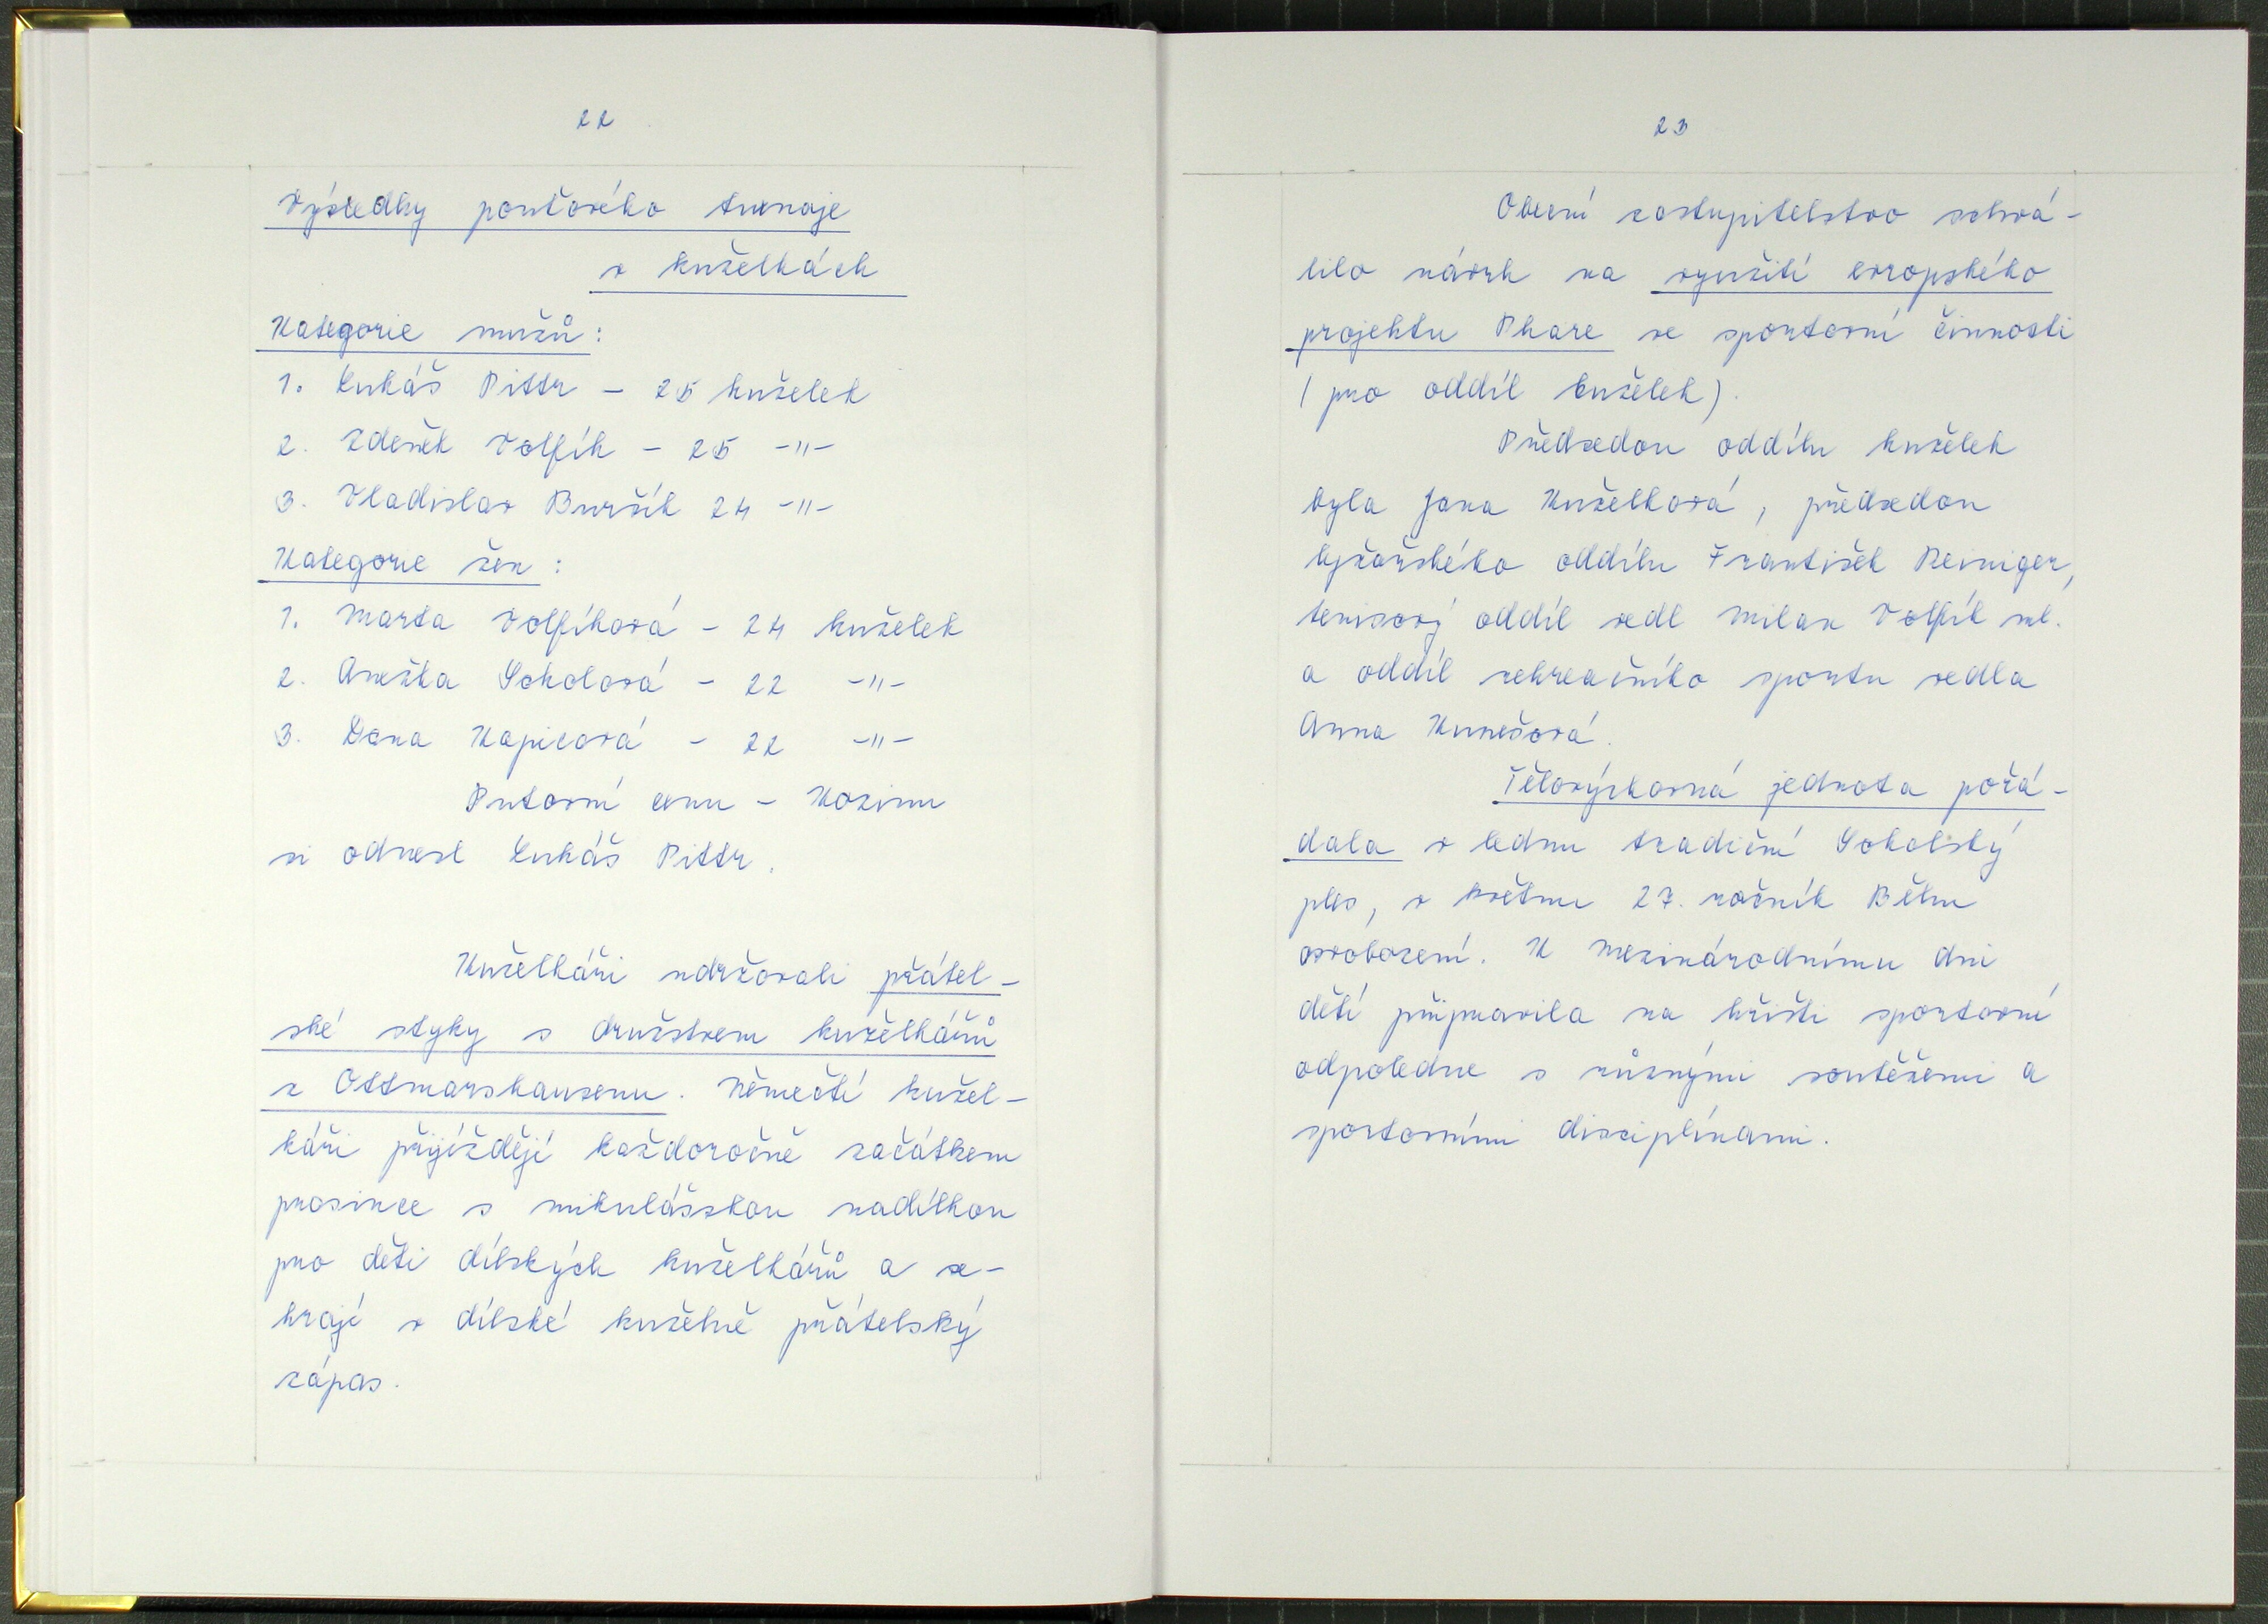 22
Výsledky pouťového turnaje
v kuželkách
Kategorie mužů:
1. Lukáš Pittr - 25 kuželek
2. Zdeněk Volfík - 25 -"-
3. Vladislav Buršík 24 -"-
Kategorie žen:
1. Marta Volfíková - 24 kuželek
2. Anežka Sokolová - 22 -"-
3. Dana Kapicová - 22 -"-
Putovní cenu - Kozinu
si odnesl Lukáš Pittr.
Kuželkáři udržovali přátel-
ské styky s družstvem kuželkářů
z Ottmarshausenu. Němečtí kužel-
káři přijíždějí každoročně začátkem
prosince s mikulášskou nadílkou
pro děti dílských kuželkářů a se-
hrají v dílské kuželně přátelský
zápas.
23
Obecní zastupitelstvo schvá-
lilo návrh na využití evropského
projektu Phare ve sportovní činnosti
(pro oddíl kuželek).
Předsedou oddílu kuželek
byla Jana Kuželková, předsedou
lyžařského oddílu František Reiniger,
tenisový oddíl vedl Milan Volfík ml.
a oddíl rekreačního sportu vedla
Anna Kunešová.
Tělovýchovná jednota pořá-
dala v lednu tradiční Sokolský
ples, v květnu 27. ročník Běhu
osvobození. K Mezinárodnímu dni
dětí připravila na hřišti sportovní
odpoledne s různými soutěžemi a
sportovními disciplínami.